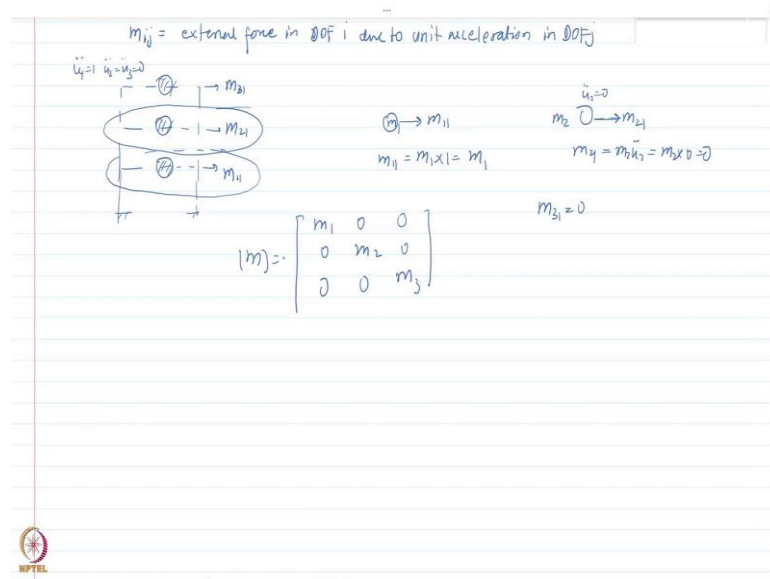 ...
mij = external force in DOF i due to unit acceleration in DOF j
ü1=1 ü2=ü3=0
→ m31
→ m21
→ m11
m1 → m11
m11 = m1×1 = m1
ü2=0
m2 → m21
m21 = m2ü2 = m2×0=0
m31=0
[m] =
m1 0 0
0 m2 0
0 0 m3
NPTEL